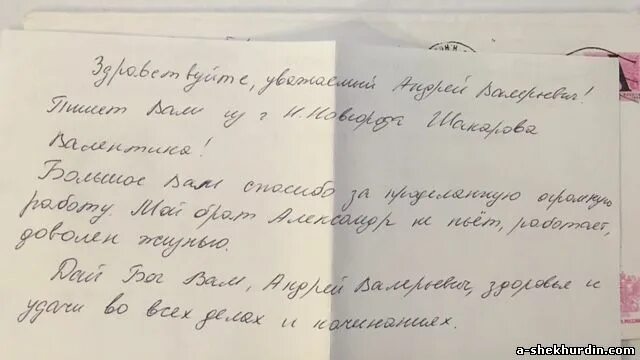 Здравствуйте, уважаемый Андрей Валерьевич!
Пишет Вам из г Н.Новгорода Шакарова
Валентина!
Большое Вам спасибо за проделанную огромную
работу. Мой брат Александр не пьёт, работает,
доволен жизнью.
Дай Бог Вам, Андрей Валерьевич, здоровья и
удачи во всех делах и начинаниях.
a-shekhurdin.com